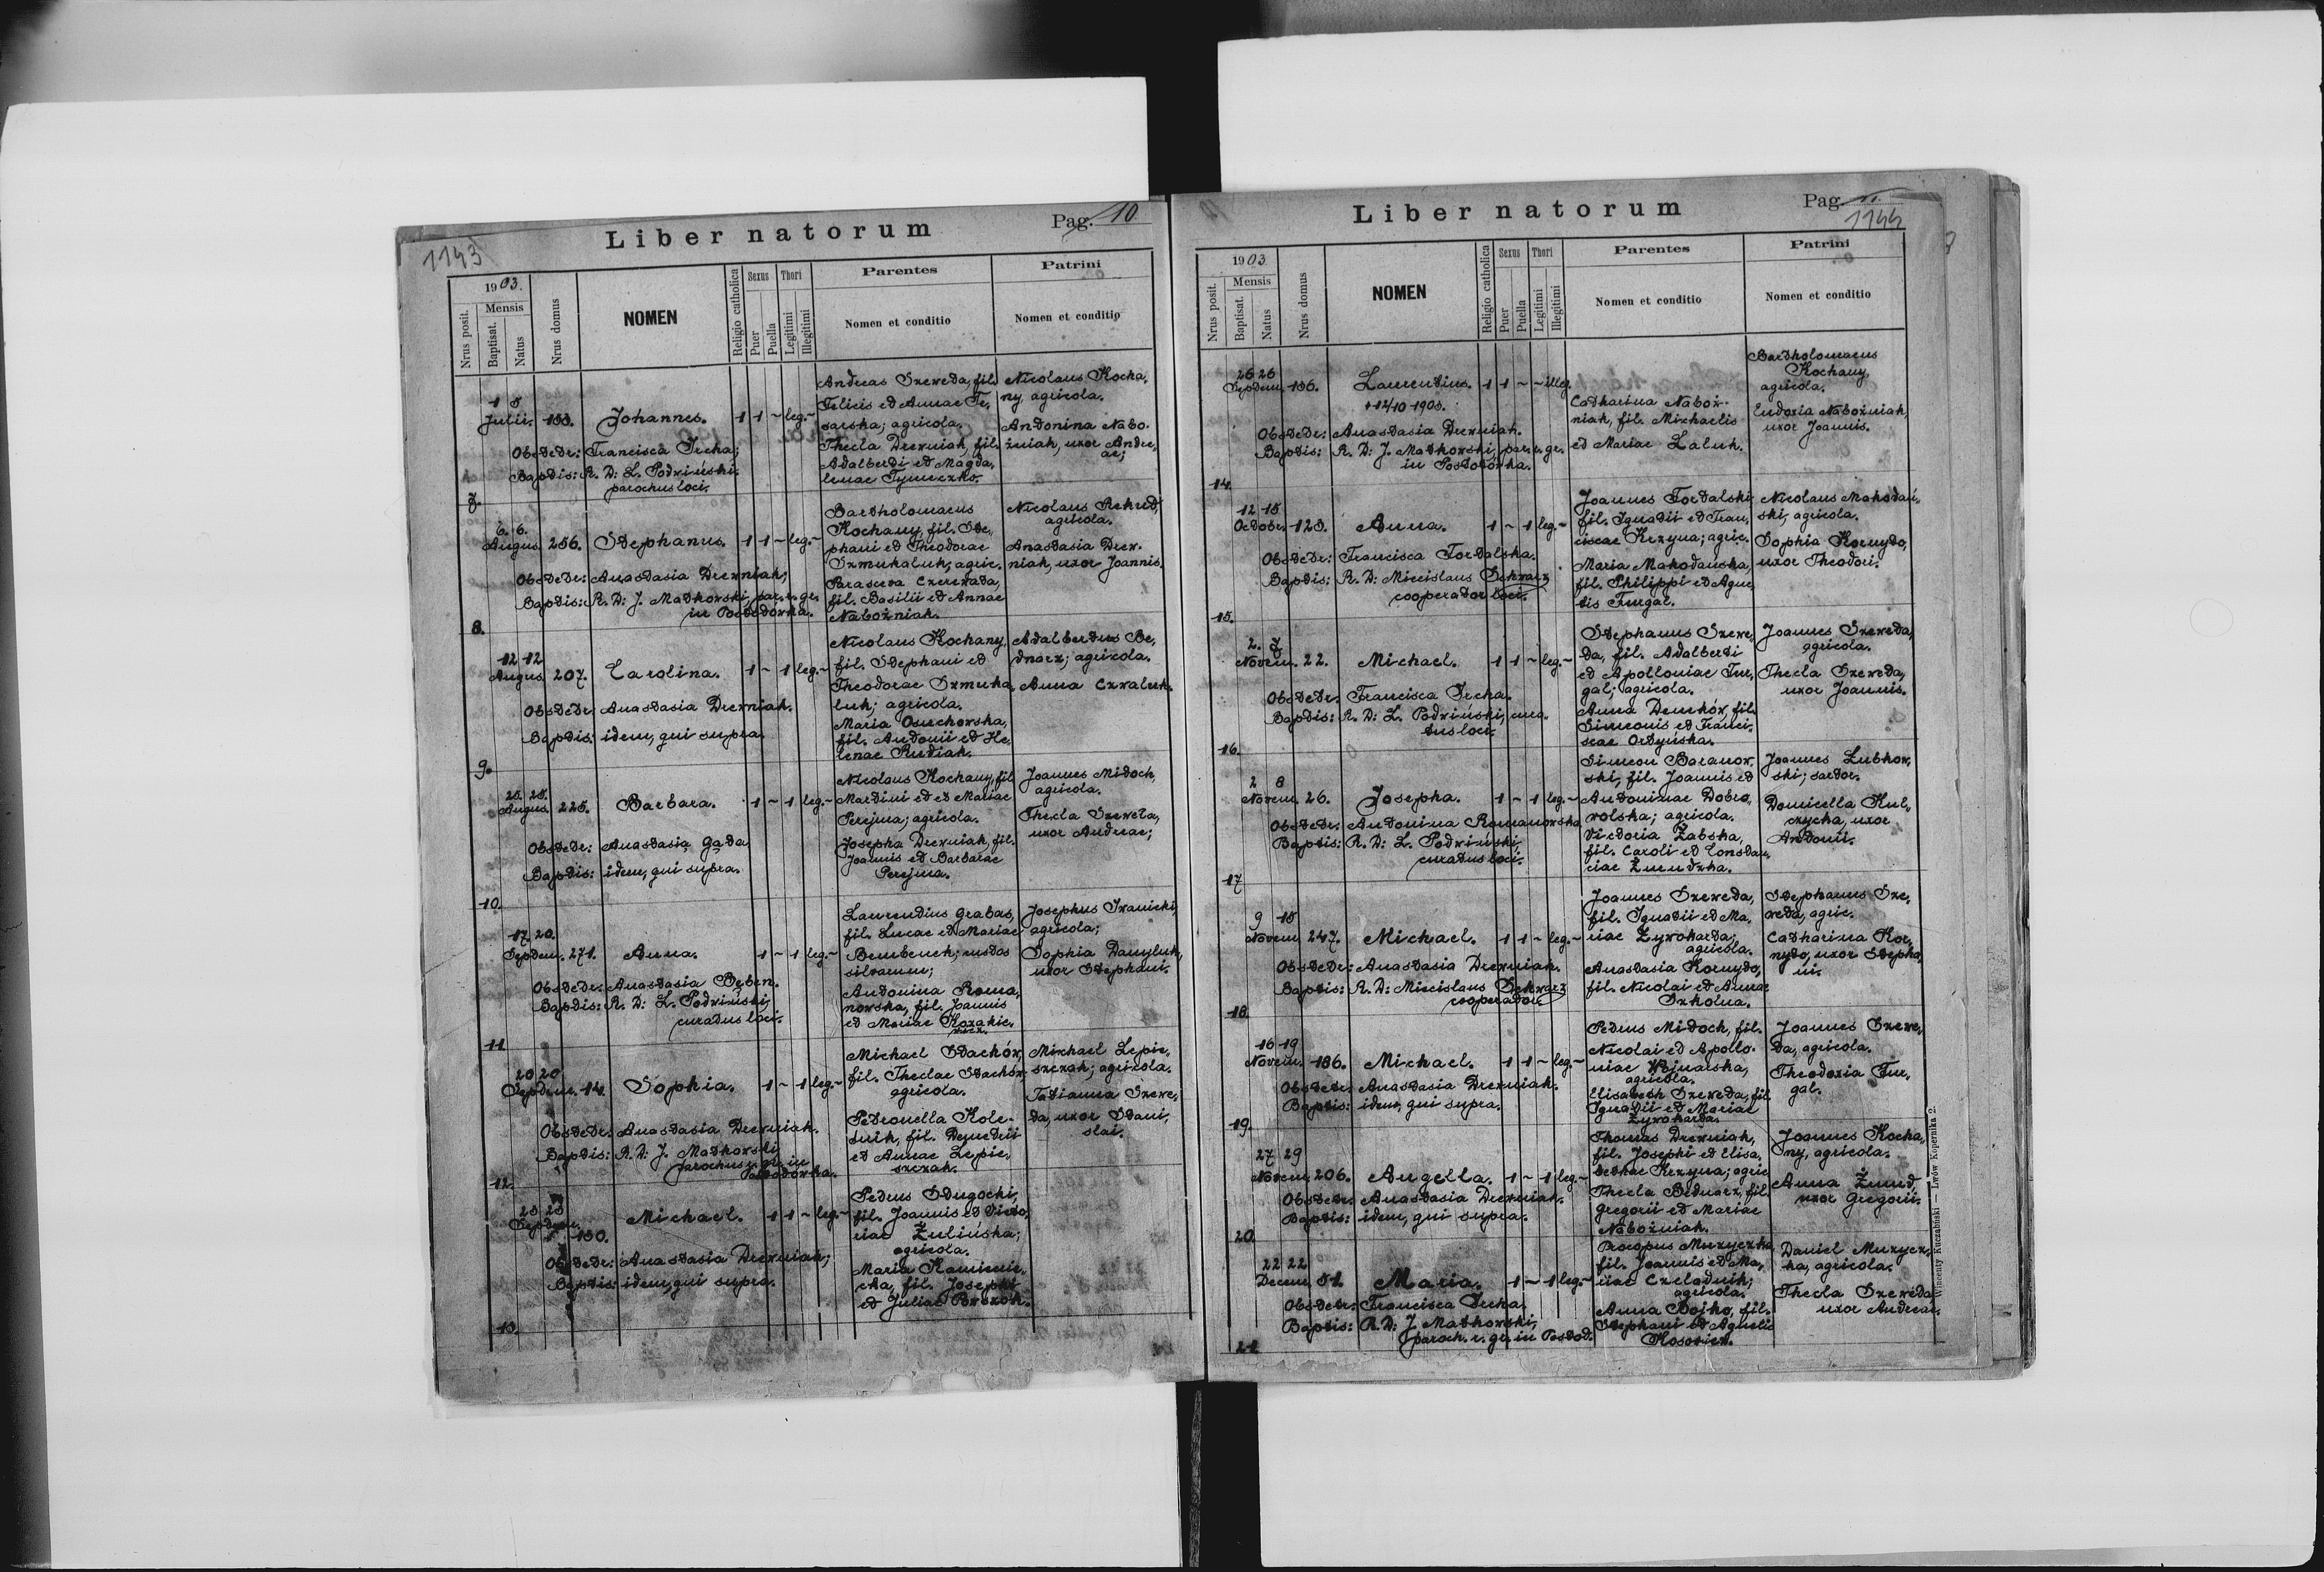 1143
Liber natorum
Pag. 10
1903.
Nrus posit.
Mensis
Baptisat.
Natus
Nrus domus
NOMEN
Religio catholica
Sexus
Puer
Puella
Thori
Legitimi
Illegitimi
Parentes
Nomen et conditio
Patrini
Nomen et conditio
7.
1 5
Julii. 133. Johannes. 1 1 ~ leg. ~
Obstetr: Francisca Ircha;
Baptis: R. D: L. Podwiński
parochus loci.
Andreas Szeweda, fil.
Felicis et Annae Te„
sarska; agricola.
Thecla Drewniak, fil.
Adalberti et Magda„
lenae Tymeczko.
Nicolaus Kocha„
ny, agricola.
Antonina Nabo„
żniak, uxor Andre„
ae;
8.
6. 6.
Augus. 256. Stephanus. 1 1 ~ leg. ~
Obstetr: Anastasia Drewniak;
Baptis: R. D: J. Matkowski, par. r. gr.
in Postołówka.
Bartholomaeus
Kochany, fil. Ste„
phani et Theodorae
Szmuhaluk; agric.
Parasceva Czerewada,
fil. Basilii et Annae
Nabożniak.
Nicolaus Rekrut,
agricola.
Anastasia Drew„
niak, uxor Joannis.
9.
12 12
Augus. 207. Carolina. 1 ~ 1 leg. ~
Obstetr: Anastasia Drewniak.
Baptis: idem, qui supra.
Nicolaus Kochany,
fil. Stephani et
Theodorae Szmuha„
luk; agricola.
Maria Osuchowska,
fil. Antonii et He„
lenae Rudiak.
Adalbertus Be„
dnarz; agricola.
Anna Czwaluk.
10.
25. 25.
Augus. 225. Barbara. 1 ~ 1 leg. ~
Obstetr: Anastasia Gada
Baptis: idem, qui supra.
Nicolaus Kochany, fil.
Martini et et Mariae
Perejma; agricola.
Josepha Drewniak, fil.
Joannis et Barbarae
Perejma.
Joannes Midoch,
agricola.
Thecla Szeweta,
uxor Andreae;
11.
17. 20.
Septem. 271. Anna. 1 ~ 1 leg. ~
Obstetr: Anastasia Bęben.
Baptis: R. D: L. Podwiński,
curatus loci.
Laurentius Grabas,
fil. Lucae et Mariae
Bembenek; custos
silvarum;
Antonina Roma„
nowska, fil. Joannis
et Mariae Kozakie„
wicz.
Josephus Iwanicki,
agricola;
Sophia Danyluk,
uxor Stephani.
12.
20 20
Septem. 14. Sophia. 1 ~ 1 leg. ~
Obstetr: Anastasia Drewniak.
Baptis: R. D: J. Matkowski
parochus r. gr. in
Postołówka.
Michael Stachów,
fil. Theclae Stachów;
agricola.
Petronella Kole„
snik, fil. Demetrii
et Annae Lepie„
szczak.
Michael Lepie„
szczak; agricola.
Tatianna Szewe„
da, uxor Stani„
slai.
13.
23 23
Septem. 130. Michael. 1 1 ~ leg. ~
Obstetr: Anastasia Drewniak;
Baptis: idem, qui supra.
Petrus Długocki,
fil. Joannis et Victo„
riae Żulińska;
agricola.
Maria Kamienie„
cka, fil. Josephi
et Juliae
Liber natorum
Pag. 11.
1144
1903
Nrus posit.
Mensis
Baptisat.
Natus
Nrus domus
NOMEN
Religio catholica
Sexus
Puer
Puella
Thori
Legitimi
Illegitimi
Parentes
Nomen et conditio
Patrini
Nomen et conditio
14.
26 26
Septem. 136. Laurentius. 1 1 ~ ~ illeg.
+ 12/10 1903.
Obstetr: Anastasia Drewniak.
Baptis: R. D: J. Matkowski, par. r. gr.
in Postołówka.
Catharina Naboż„
niak, fil. Michaelis
et Mariae Laluk.
Bartholomaeus
Kochany,
agricola.
Eudoxia Nabożniak,
uxor Joannis.
15.
12 15
Octobr. 123. Anna. 1 ~ 1 leg. ~
Obstetr: Francisca Tortalska.
Baptis: R. D: Miecislaus Schwarz
cooperator loci.
Joannes Tortalski
fil. Ignatii et Fran„
ciscae Krzywa; agric.
Maria Mahotańska,
fil. Philippi et Agne„
tis Furgal.
Nicolaus Mahotań„
ski, agricola.
Sophia Kornyto,
uxor Theodori.
16.
2. 7
Novem. 22. Michael. 1 1 ~ leg. ~
Obstetr: Francisca Ircha.
Baptis: R. D: L. Podwiński, cura„
tus loci.
Stephanus Szewe„
da, fil. Adalberti
et Apolloniae Fur„
gal; agricola.
Anna Demków, fil.
Simeonis et Franci„
scae Ortyńska.
Joannes Szeweda,
agricola.
Thecla Szeweda,
uxor Joannis.
17
2 8
Novem. 26. Josepha. 1 ~ 1 leg. ~
Obstetr: Antonina Romanowska
Baptis: R. D: L. Podwiński,
curatus loci.
Simeon Baranow„
ski, fil. Joannis et
Antoninae Dobro„
wolska; agricola.
Victoria Żabska,
fil. Caroli et Constan„
ciae Żmudzka.
Joannes Lubkow„
ski; sartor.
Domicella Kul„
czycka, uxor
Antonii.
18.
9 15
Novem. 247. Michael. 1 1 ~ leg. ~
Obstetr: Anastasia Drewniak.
Baptis: R. D: Miecislaus Schwarz
cooperator.
Joannes Szeweda,
fil. Ignatii et Ma„
riae Żywokarta;
agricola.
Anastasia Kornyto,
fil. Nicolai et Annae
Szkolna.
Stephanus Sze„
weda, agric.
Catharina Kor„
nyto, uxor Stepha„
ni.
19.
16 19
Novem. 186. Michael. 1 1 ~ leg. ~
Obstetr: Anastasia Drewniak.
Baptis: idem, qui supra.
Petrus Midoch, fil.
Nicolai et Apollo„
niae Winarska,
agricola.
Elisabeth Szeweda, fil.
Ignatii et Mariae
Żywokarta.
Joannes Szewe„
da, agricola.
Theodozia Fur„
gal.
20.
27 29
Novem. 206. Angella. 1 ~ 1 leg. ~
Obstetr: Anastasia Drewniak.
Baptis: idem, qui supra.
Thomas Drewniak,
fil. Josephi et Elisa„
bethae Krzywa; agric.
Thecla Bednarz, fil.
Gregorii et Mariae
Nabożniak.
Joannes Kocha„
ny, agricola.
Anna Żmud,
uxor Gregorii.
21
22 22
Decem. 51. Maria. 1 ~ 1 leg. ~
Obstetr: Francisca Ircha
Baptis: R. D: J. Matkowski,
paroch. r. gr. in Postoł.
Procopus Muzyczka,
fil. Joannis et Ma„
riae Czeladnik;
agricola.
Anna Bojko, fil.
Stephani et Agnetis
Kosowicz.
Daniel Muzycz„
ka, agricola.
Thecla Szeweda
uxor Andreae.
Wincenty Kuczabiński — Lwów Kopernika 2.